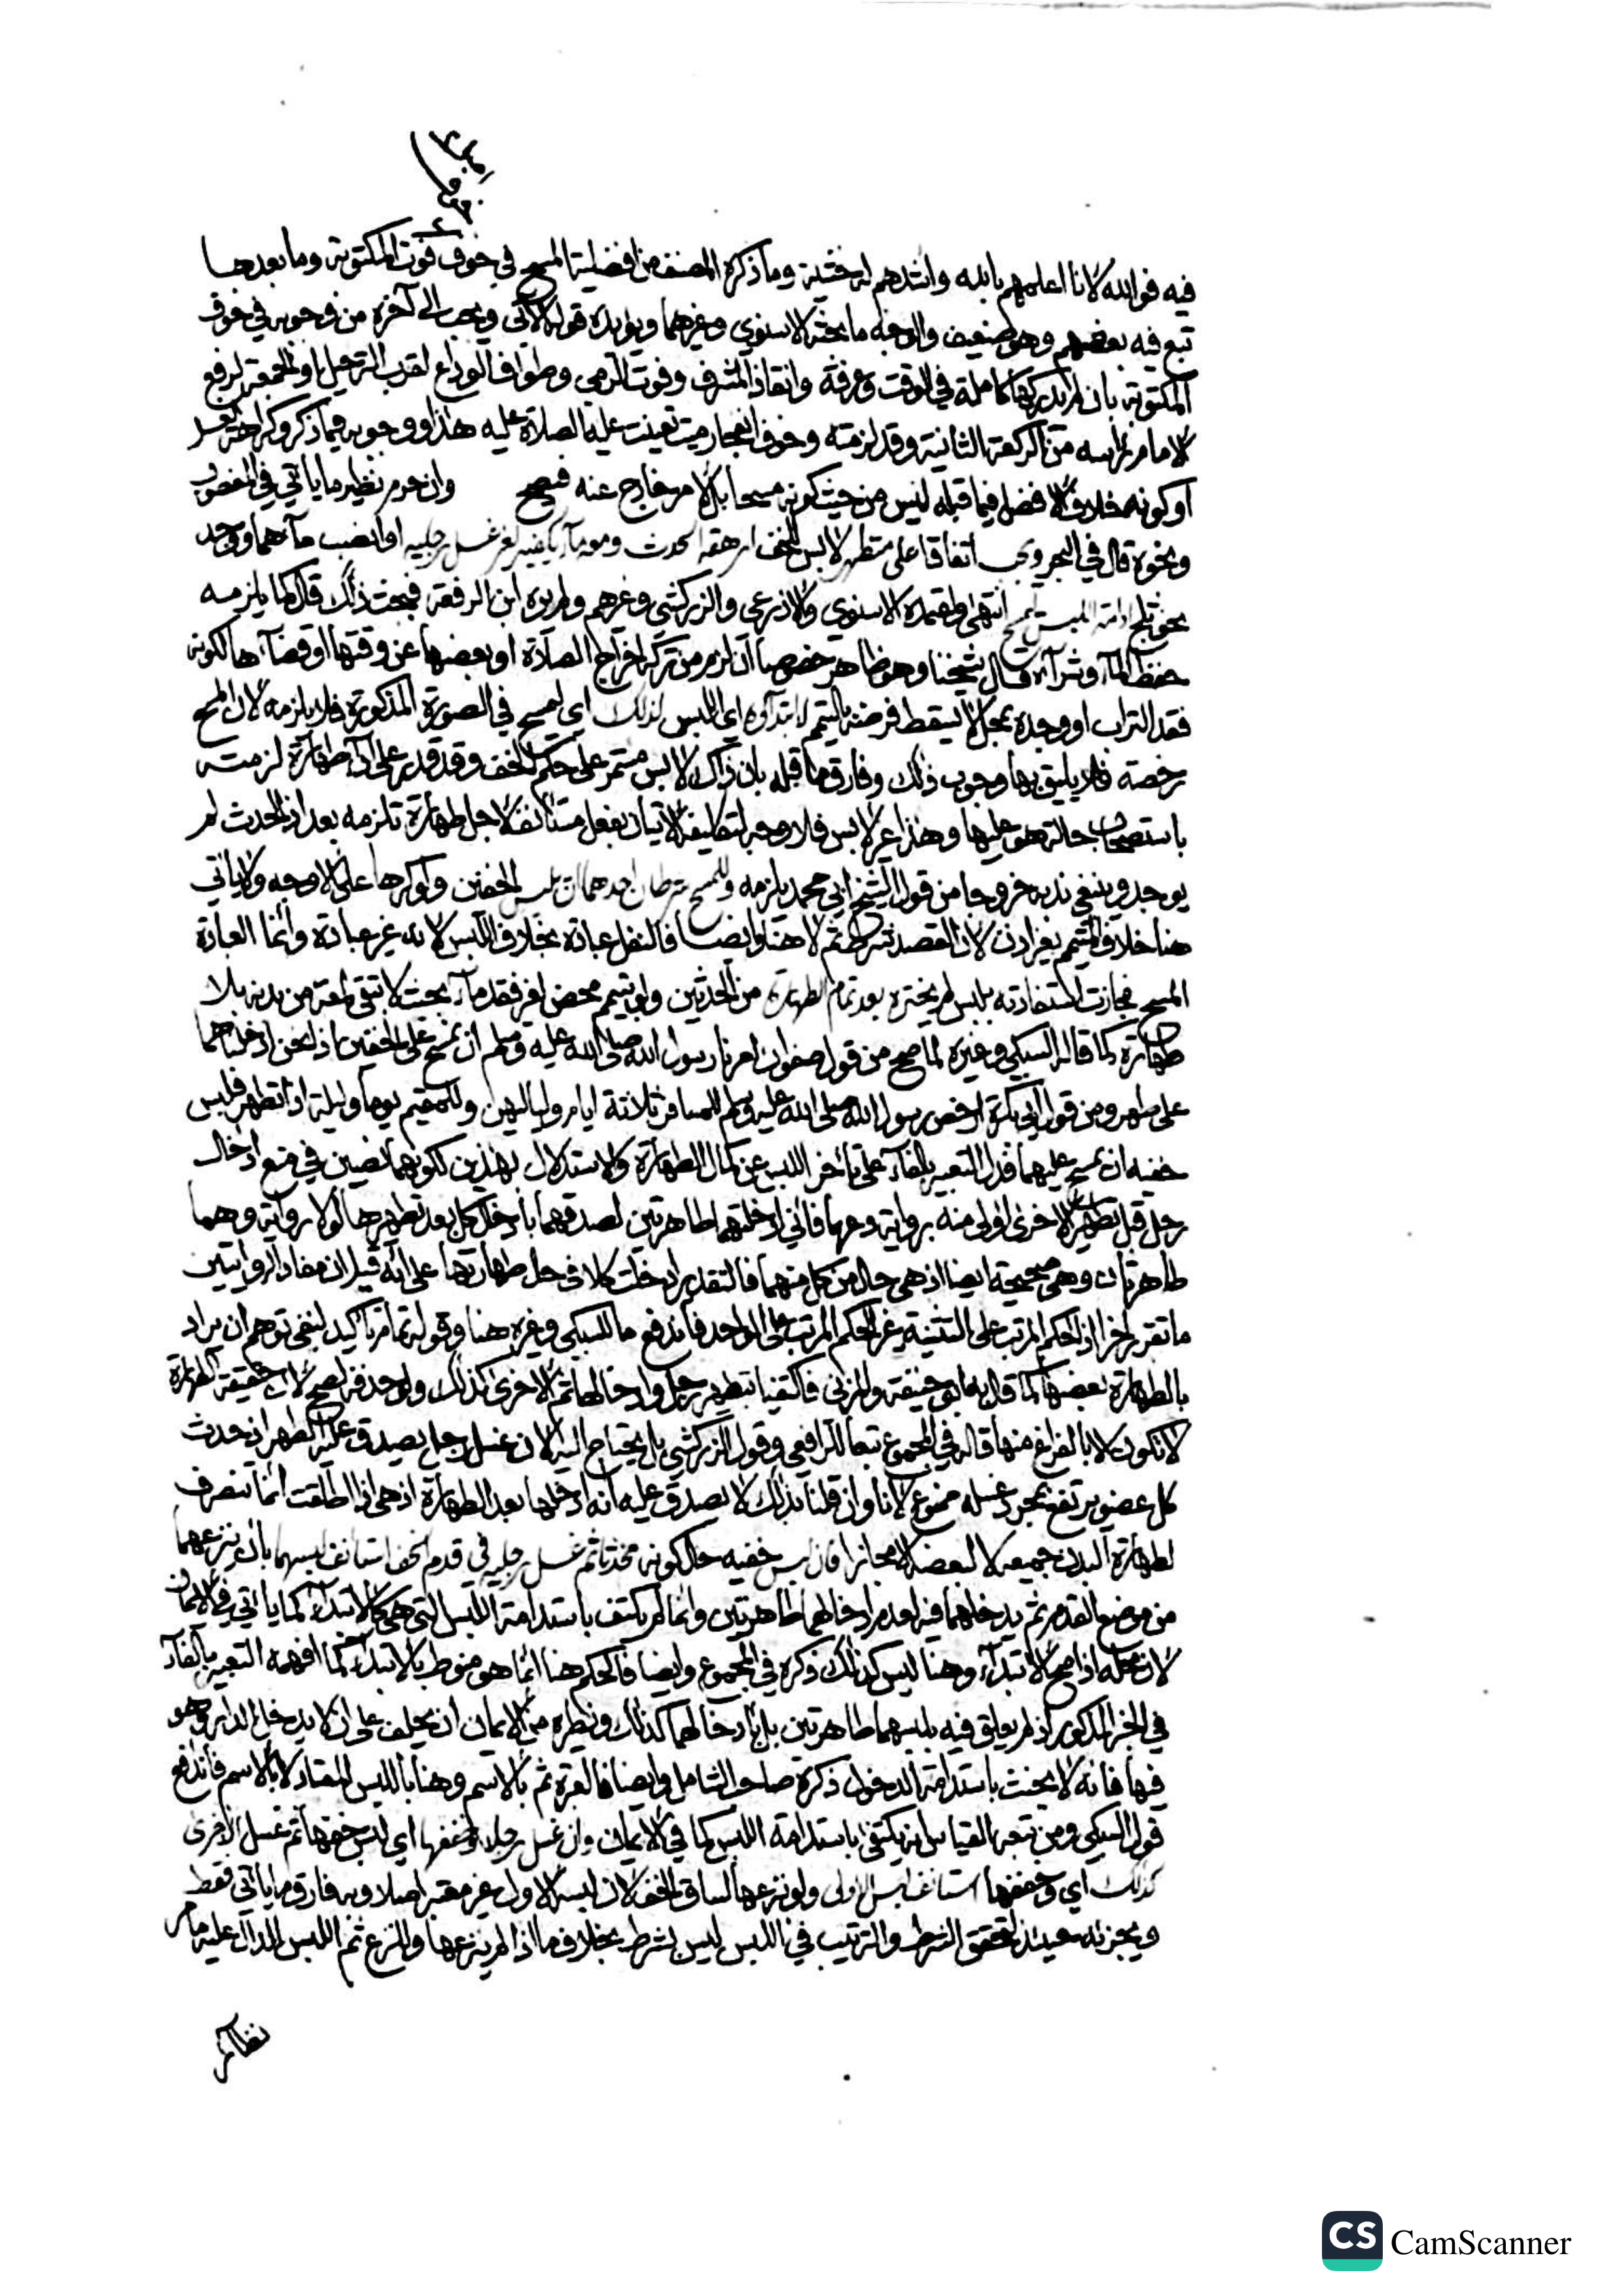 فيه فوالله لانا اعلمهم بالله واشدهم له خشية وما ذكره المصنف من افضلية المسح في خوف فوت المكتوبة وما بعدها
تبع فيه بعضهم وهو ضعيف والوجه ما بحثه الاسنوي وغيرهما ويؤيده قوله الآتي ويجب الى آخره من وجوبه في خوف
المكتوبة بان لم يدركها كاملة في الوقت وعرفة وانقاذ المشرف وفوت الرمي وطواف الوداع لقرب الترحيل او الجمعة لرفع
الامام راسه من الركعة الثانية وقد لزمته وخوف انفجار ميت تعينت عليه الصلاة عليه هذا ووجوبه فيما ذكر وكراهة
او كونه خلاف الافضل فيما قبله ليس من حيث كونه مسحا بل لامر خارج عنه فيصح وان حرم نظير ما ياتي في المغصوب
ونحوه قال في البحر ويجب اتفاقا على متطهر لابس للخف ارهقه الحدث ومعه ماء يكفيه لغير غسل رجليه او انصب ماءهما ووجد
نحو ثلج ادامة اللبس ليمسح انتهى واعتمده الاسنوي والاذرعي والزركشي وغيرهم ولم يره ابن الرفعة فبحث ذلك قال كما يلزمه
حفظ الماء وشراءه قال شيخنا وهو ظاهر خصوصا ان لزم من تركه اخراج الصلاة او بعضها عن وقتها او قضاءها لكونه
فقد التراب او وجده بمحل لا يسقط فرضه بالتيمم لا ابتداء اي اللبس لذلك اي ليمسح في الصورة المذكورة فلا يلزمه لان المسح
رخصة فلا يليق بها وجوب ذلك وفارق ما قبله بان ذاك لابس مستمر على حكم الخف وقد قدر على اداء طهارة لزمته
باستصحاب حالة هو عليها وهذا غير لابس فلا وجه لتكليفه الاتيان بفعل مستانف لاجل طهارة تلزمه بعد اذ الحدث لم
يوجد وينبغي ندبه خروجا من قول الشيخ ابي محمد يلزمه وللمسح شرطان احدهما ان يلبس الخفين ولو كرها على الاوجه ولا ياتي
هنا خلاف المتيمم بغير اذن لان القصد شرط ثم لا هنا وايضا فالنقل عبادة بخلاف اللبس لانه غير عبادة وانما العبادة
المسح فجازت استفادته بلبس لم يختره بعد تمام الطهارة من الحدثين ولو بتيمم محض لغير فقد ماء بحيث لا تبقى لمعة من بدنه بلا
طهارة كما قاله السبكي وغيره لما صح من قول صفوان امرنا رسول الله صلى الله عليه وسلم ان نمسح على الخفين اذا نحن ادخلناهما
على طهر ومن قول ابي بكرة ارخص رسول الله صلى الله عليه وسلم للمسافر ثلاثة ايام ولياليهن وللمقيم يوما وليلة اذا تطهر فلبس
خفيه ان يمسح عليهما فدل التعبير بالفاء على تاخر اللبس عن كمال الطهارة والاستدلال بهذين لكونهما نصين في منع ادخال
رجل قبل تطهير الاخرى اولى منه برواية دعهما فاني ادخلتهما طاهرتين لصدقهما بادخال كل بعد تطهيرها لولا رواية وهما
طاهرتان وهي صحيحة ايضا اذ هي حال من كل منهما فالتقدير ادخلت كلا في حال طهارتها على انه قيل ان مفاد الروايتين
ما تقرر اخرا اذ الحكم المرتب على التثنية غير الحكم المرتب على الواحد فاندفع ما للسبكي وغيره هنا وقوله تمام تاكيد لنفي توهم ان يراد
بالطهارة بعضها كما قال به ابو حنيفة والمزني فاكتفيا بتطهير رجل وادخالها ثم الاخرى كذلك ولو حذفه لصح لان حقيقة الطهارة
لا تكون الا بالفراغ منها قاله في المجموع تبعا للرافعي وقول الزركشي بل يحتاج اليه لان غسل رجل يصدق عليه الطهر اذ حدث
كل عضو يرتفع بمجرد غسله ممنوع لانا وان قلنا بذلك لا يصدق عليه انه ادخلها بعد الطهارة اذ هي اذا اطلقت انما تنصرف
لطهارة البدن جميعه لا لبعضه الا مجازا فان لبس خفيه حال كونه محدثا ثم غسل رجليه في قدم الخف استانف لبسهما بان ينزعهما
من موضع القدم ثم يدخلهما فيه لعدم ادخالهما طاهرتين وانما لم يكتف باستدامة اللبس التي هي كالابتداء كما ياتي في الايمان
لان محله اذا صح الابتداء وهنا ليس كذلك ذكره في المجموع وايضا فالحكم هنا انما هو منوط بالابتداء كما افهمه التعبير بالفاء
في الخبر المذكور اذ لم يعلق فيه بلبسهما طاهرتين بل بادخالهما كذلك ونظيره من الايمان ان يحلف على ان لا يدخل الدار وهو
فيها فانه لا يحنث باستدامة الدخول ذكره صاحب الشامل وايضا فالعبرة ثم بالاسم وهنا باللبس المعتاد لا بالاسم فاندفع
قول السبكي ومن تبعه القياس انه يكتفى باستدامة اللبس كما في الايمان وان غسل رجلا وخففها اي لبس خفها ثم غسل الاخرى
كذلك اي وخففها استانف لبس الاولى ولو نزعها لساق الخف لان لبسه الاول غير معتبر اصلا وبه فارق ما ياتي فقط
ويجزئه حينئذ لتحقق الشرط والترتيب في اللبس ليس بشرط بخلاف ما اذا لم ينزعها والنزع ثم اللبس الدال عليه ما مر
نظائر
CS CamScanner